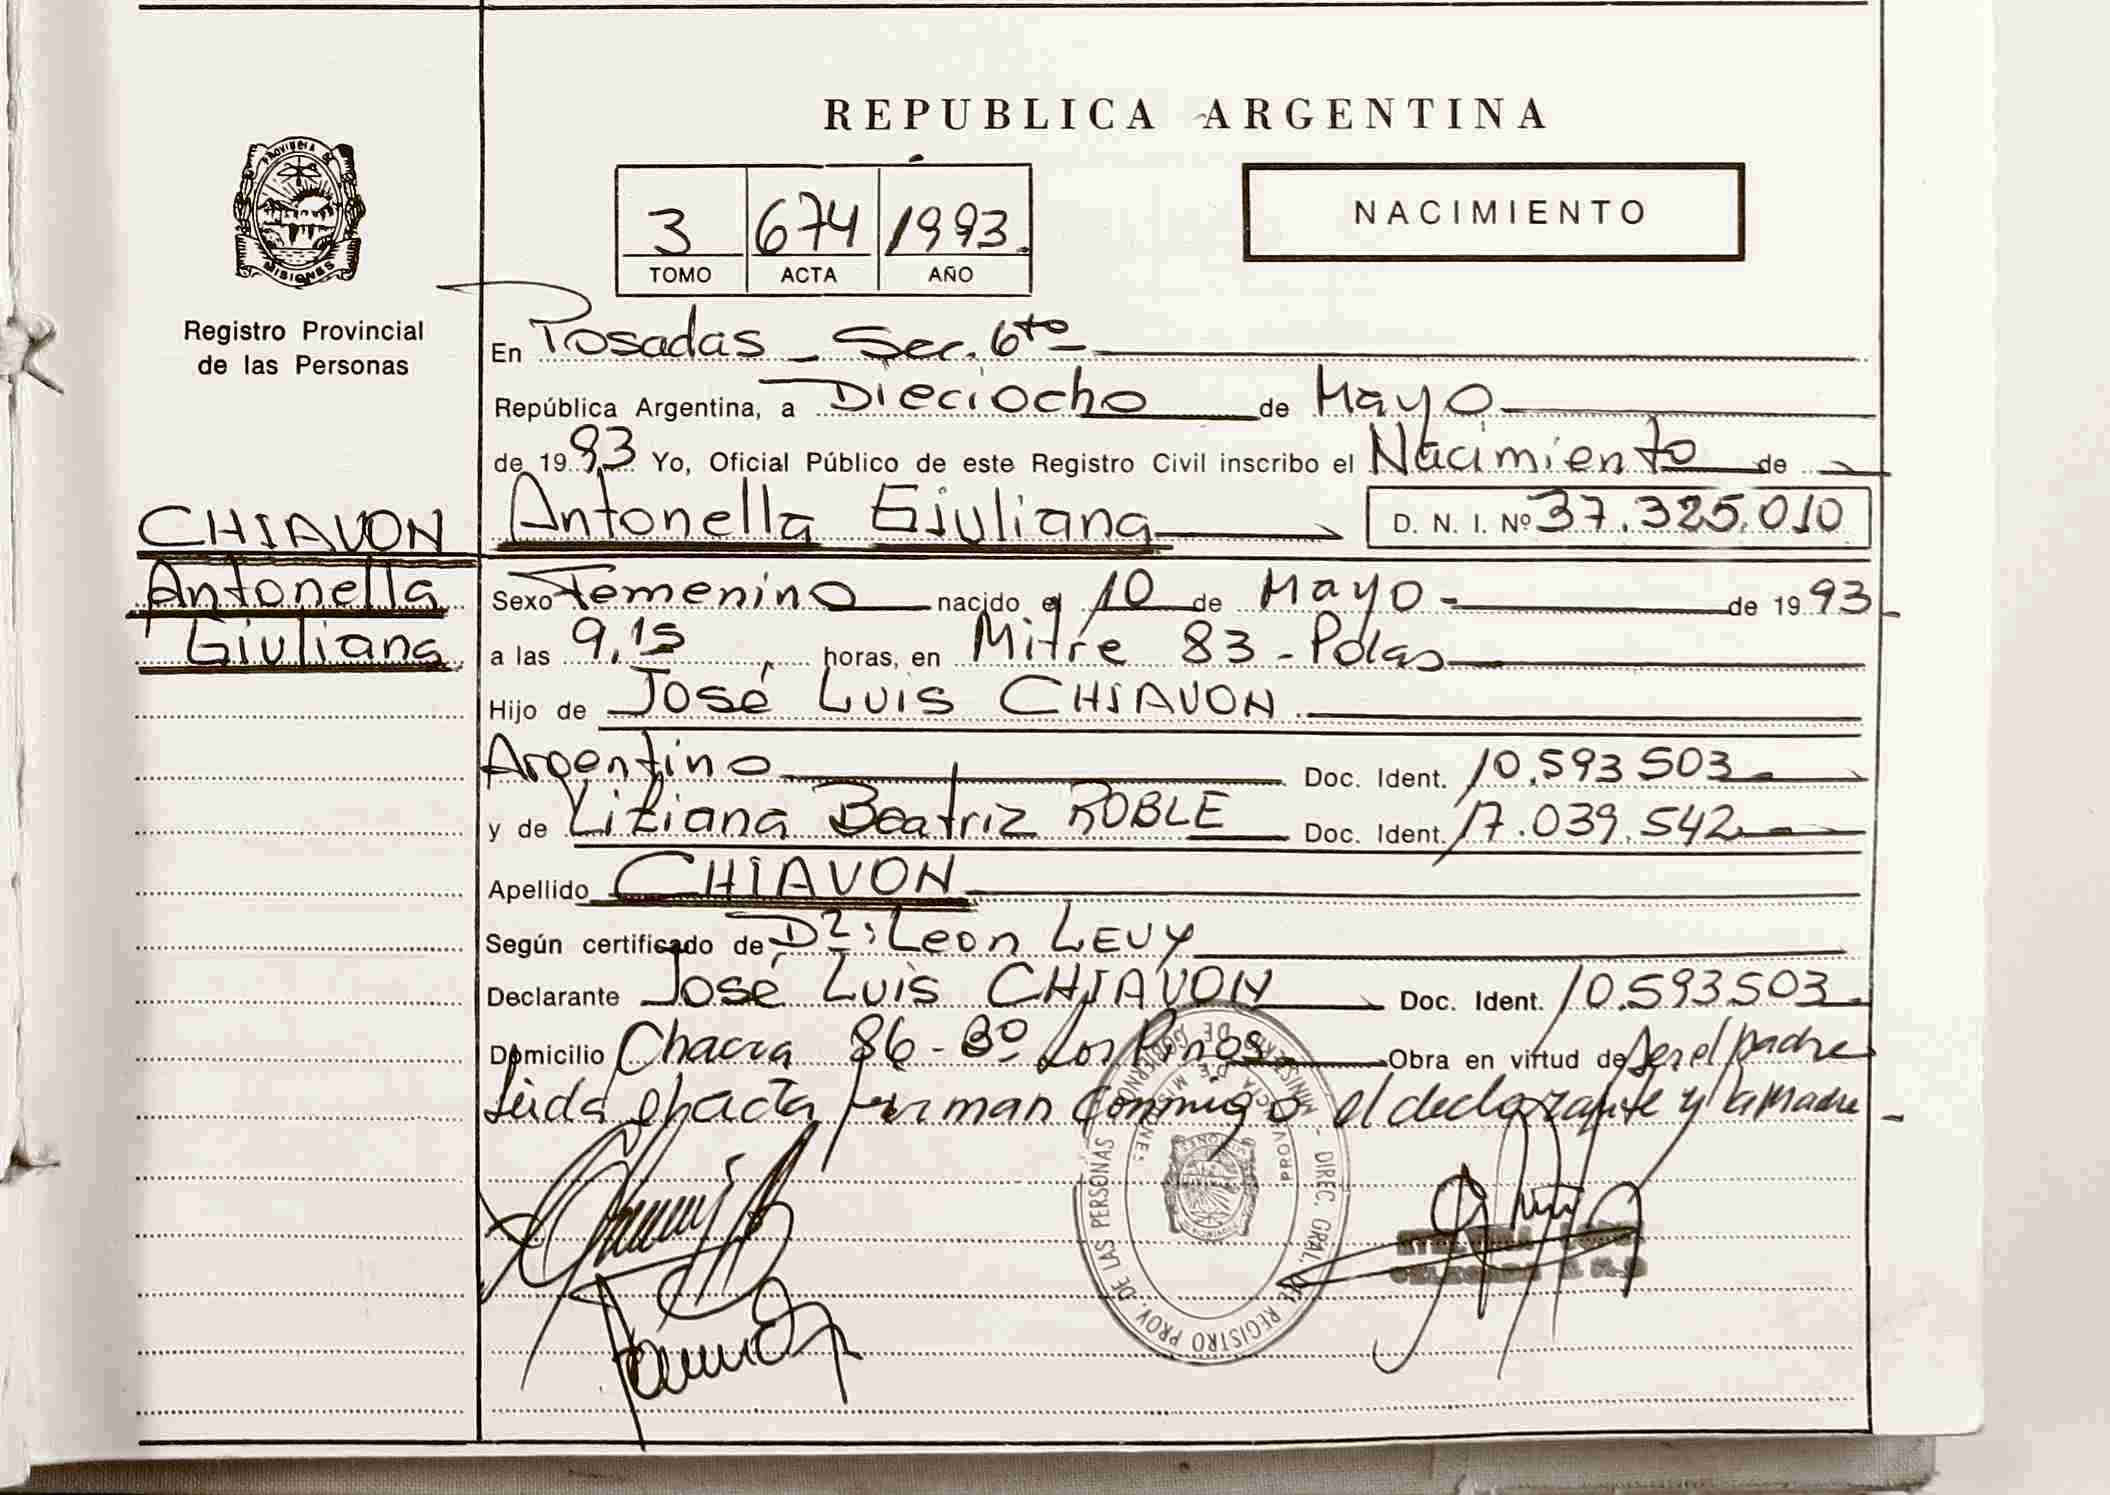 REPUBLICA ARGENTINA
PROVINCIA DE MISIONES
Registro Provincial
de las Personas
3 674 1993
TOMO ACTA AÑO
NACIMIENTO
En Posadas - Sec. 6to
República Argentina, a Dieciocho de Mayo
de 1993 Yo, Oficial Público de este Registro Civil inscribo el Nacimiento de
CHIAVON
Antonella
Giuliana
Antonella Giuliana D. N. I. Nº 37.325.010
Sexo Femenino nacido el 10 de Mayo - de 1993
a las 9,15 horas, en Mitre 83 - Pdas
Hijo de José Luis CHIAVON
Argentino Doc. Ident. 10.593.503
y de Liziana Beatriz ROBLE Doc. Ident. 17.039.542
Apellido CHIAVON
Según certificado de Dr: Leon LEVY
Declarante José Luis CHIAVON Doc. Ident. 10.593503
Domicilio Chacra 86 - Bº Los Pinos Obra en virtud de ser el padre
Leida el acta firman conmigo el declarante y la madre
MINISTERIO DE GOBIERNO - DIREC. GRAL. DEL REGISTRO PROV. DE LAS PERSONAS
PROVINCIA DE MISIONES